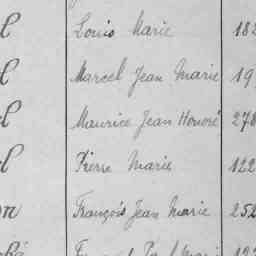 l Louis Marie 182
l Marcel Jean Marie 19
el Maurice Jean Honoré 278
el Pierre Marie 122
on François Jean Marie 252